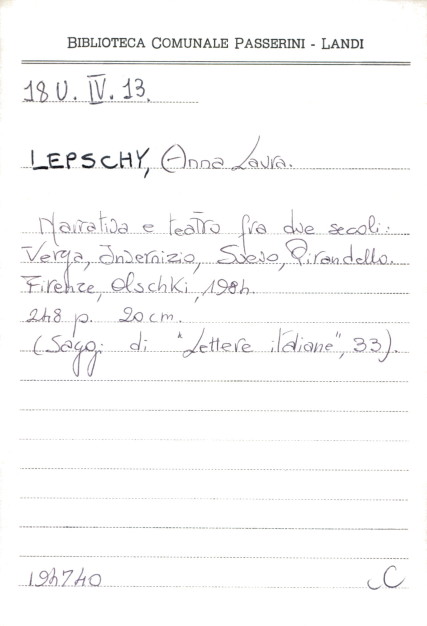 BIBLIOTECA COMUNALE PASSERINI - LANDI
18 U. IV. 13.
LEPSCHY, Anna Laura.
Narrativa e teatro fra due secoli:
Verga, Invernizio, Svevo, Pirandello.
Firenze, Olschki, 1984.
248 p. 20 cm.
(Saggi di "Lettere italiane", 33).
194740
C